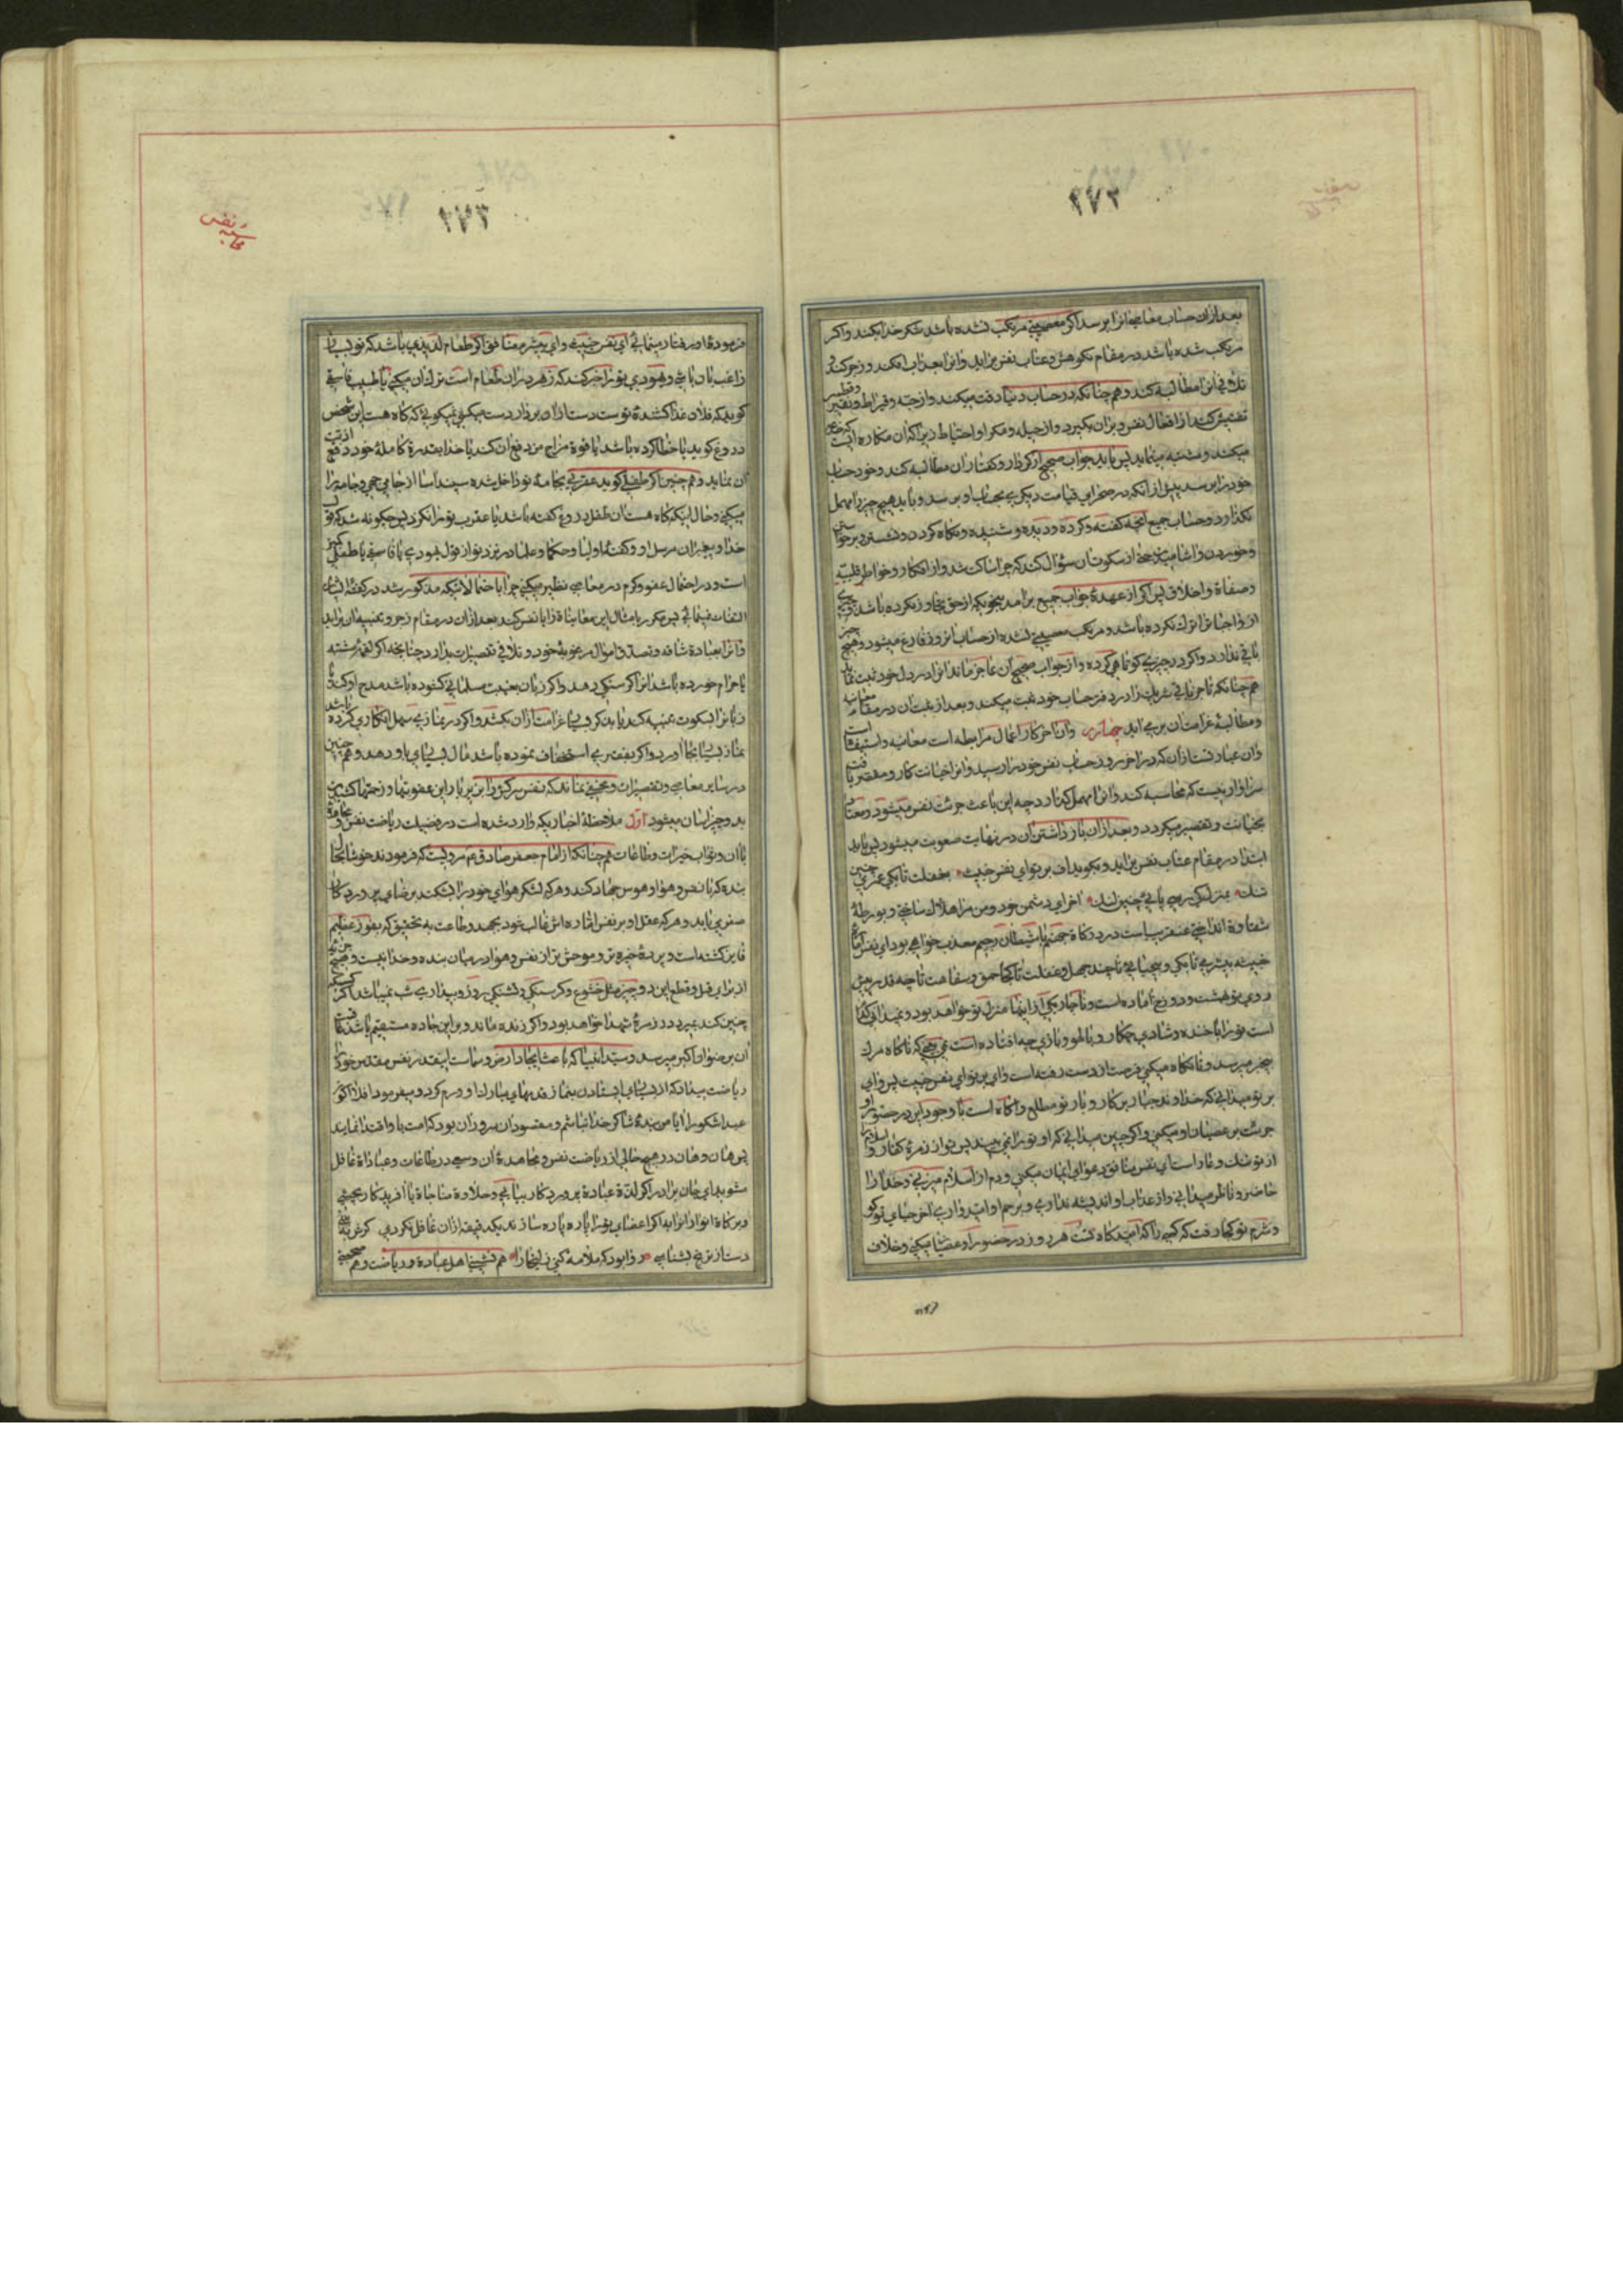 ۲۷۲
بعد از ان حساب معاصی انرا برسد اگر معصیتی مرتکب نشده باشد شکر خدا بکند و اگر
مرتکب شده باشد در مقام نکوهش و عتاب نفس براید و انرا بعذاب افکند و زجر کند و
تلافی انرا مطالبه کند و هم چنانکه در حساب دنیا دقت میکند و از حبه و قیراط و نقیر و قطمیر
تفتیش کند از افعال نفس و بران بگیرد و از حیله و مکر او احتیاط زیرا که ان مکاره ایست که
میکند و مشتبه مینماید پس باید جواب صحیح از کردار و گفتار ان مطالبه کند و خود حساب
خود را برسد پیش از انکه در صحرای قیامت دیگری بحساب او برسد و باید هیچ چیز را مهمل
نگذارد و حساب جمیع انچه گفته و کرده و دیده و شنیده و نگاه کردن و نشستن و برخواستن
و خوردن و اشامیدن حتی از سکوت ان سؤال کند که چرا ساکت شد و از افکار و خواطر قلبیه
و صفاة و اخلاق پس اگر از عهدهٔ جواب جمیع برامد بنحویکه از حق تجاوز نکرده باشد و
از واجبات ترک نکرده باشد و مرتکب معصیتی نشده از حساب انروز فارغ میشود و هیچ چیز
باقی ندارد و اگر در چیزی کوتاهی کرده و از جواب صحیح ان عاجز ماند انرا در دل خود ثبت نماید
هم چنانکه تاجر باقی شریک را در دفتر حساب خود ثبت میکند و بعد از ثبت ان در مقام معاتبه
و مطالبهٔ غرامت ان برمی اید چهارم وان اخر کار اعمال مرابطه است معاتبه و استیفا است
وان عبارتست از ان که در اخر روز حساب نفس خود را رسید و انرا خیانت کار و مقصر یافت
سزاوار نیست که محاسبه کند و انرا مهمل گذارد چه این باعث جرئت نفس میشود و معتاد
بخیانت و تقصیر میگردد و بعد از ان بازداشتن ان در نهایت صعوبت میشود پس باید
ابتدا در مقام عتاب نفس براید و بگوید اف بر تو ای نفس خبیث بغفلت تا بکی عمری چنین
تنک بمنزل کی رسی پائی چنین لنک اخر ای دشمن خود و من مرا هلاک ساختی و بورطهٔ
شقاوة انداختی عنقریب است در درکاة جهنم با شیطان رجیم معذب خواهی بود ای نفس امارهٔ
خبیثه بیشرمی تا بکی و بیحیائی تا چند جهل و غفلت تا کجا حمق و سفاهت تا چه قدر پیش
روی تو بهشت و دوزخ اماده است و ناچار یکی از اینها منزل تو خواهد بود و نمیدانی کدام
است تو را با خنده و شادی چکار و با لهو و بازی چه افتاده است نمی بینی که ناگاه مرک
بیخبر میرسد و تا نگاه میکنی فرصت از دست رفته است وای بر تو ای نفس خبیث پس وای
بر تو میدانی که خداوند جبار بر کار و بار تو مطلع و اگاه است با وجود این در حضور او
جرئت بر عصیان او میکنی و اگر چنین میدانی که او تو را نمی بیند پس تو از زمرهٔ کفار و
از تو ننک و عار است ای نفس منافق دعوای ایمان میکنی و دم از اسلام میزنی و خدا را
حاضر و ناظر میدانی و از عذاب او اندیشه نداری و برحم او امیدواری اخر حیای تو کو
و شرم تو کجا رفت که کسی را که امیدگاه تست هر روز در حضور او عصیان میکنی و خلاف
۲۷۳
محاسبه نفس
فرمودهٔ او رفتار مینمائی ای نفس خبیث و ای بیشرم منافق اگر طعام لذیذی باشد که تو بسیار
راغب بان باشی و یهودی تو را خبر کند که زهر در ان طعام است ترک ان میکنی یا طبیب فاسقی
گوید که فلان غذا کشندهٔ تو است دست از ان برداردست میکنی نمیگوئی که گاه هست این شخص
دروغ گوید یا خطا کرده باشد یا قوة مزاج من دفع ان کند یا خدا بقدرة کاملهٔ خود دفع اذیت
ان نماید و هم چنین اگر طفلی گوید عقربی بجامهٔ تو داخل شده سپندآسا از جا می جهی و جامه را
میکنی و حال اینکه گاه هست ان طفل دروغ گفته باشد یا عقرب تو را نگزد پس چگونه شد که قول
خدا و پیغمبران مرسل او و گفتهٔ اولیا و حکما و علما در نزد تو از قول یهودی یا فاسقی یا طفلی کمتر
است و در احتمال عفو و کرم در معاصی نظیر میکنی چرا با احتمالاتیکه مذکور شد در گفتهٔ ایشان
التفات مینمائی پس مکرر بامثال این معاتباة را با نفس کند بعد از ان در مقام زجر و تنبیه ان براید
و انرا بعبادة شاقه و تصدق اموال مرغوبهٔ خود و تلافی تقصیرات بدارد چنانچه اگر لقمهٔ مشتبه
یا حرام خورده باشد انرا گرسنگی دهد و اگر زبان بغیبت مسلمانی گشوده باشد مدح او کند یا
زبانرا بسکوت تنبیه کند یا بذکر بسیار غرامت از ان بکشد و اگر در نمازی سهل انگاری کرده باشد
نماز بسیار بجا اورد و اگر بفقیری استخفاف نموده باشد مال بسیاری باو دهد و هم چنین
در سایر معاصی و تقصیرات و مخفی نماند که نفس سرکش را در زیر بار این عقوبتها و زحمتها کشیدن
بدو چیز اسان میشود اول ملاحظهٔ اخباریکه وارد شده است در فضیلت ریاضت نفس و مجاهدهٔ
با ان و ثواب خیرات و طاعات هم چنانکه از امام جعفر صادق ع مرویست که فرمودند خوشا بحال
بنده که با نفس و هوا و هوس جهاد کند و هر که لشکر هوای خود را بشکند برضای پروردگار
ظفر می یابد و هر که عقل او بر نفس اماره اش غالب شود بجهد و طاعت به تحقیق که بفوز عظیم
فایز گشته است و پردهٔ تیره تر و موحش تر از نفس و هوا در میان بنده و خدا نیست و هیچ حربهٔ
از برای قتل و قطع این دو چیز مثل خشوع و گرسنگی و تشنگی روز و بیداری شب نمیباشد اگر کسی
چنین کند بمیرد در زمرهٔ شهدا خواهد بود و اگر زنده ماند و بر این جاده مستقیم باشد عاقبت
ان برضوان اکبر میرسد و سید انبیا که باعث ایجاد ارض و سماست اینقدر نفس مقدس خود را
ریاضت میداد که از بسیاری ایستادن بنماز قدمهای مبارک او ورم کرد و میفرمود افلا اکون
عبدا شکورا ایا من بندهٔ شاکر خدا نباشم و مقصود ان سروران بود که امت باو اقتدا نمایند
پس هان و هان در هیچ حالی از ریاضت نفس و مجاهدهٔ ان و سعی در طاعات و عباداة غافل
مشو بدای جان برادر اگر لذة عبادة پروردگار بیابی و حلاوة مناجاة با افریدگار بچشی
و برکاة انوار انرا بیابی اگر اعضای تو را پاره پاره سازند یکدقیقه از ان غافل نگردی گرش به بینی و
دست از ترنج بشناسی روا بود که ملامه کنی زلیخا را هم نشینی اهل عبادة و ریاضت و هم صحبتی